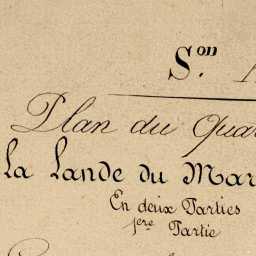 S.on
Plan du Quar
La Lande du Mar
En deux Parties
1ere Partie